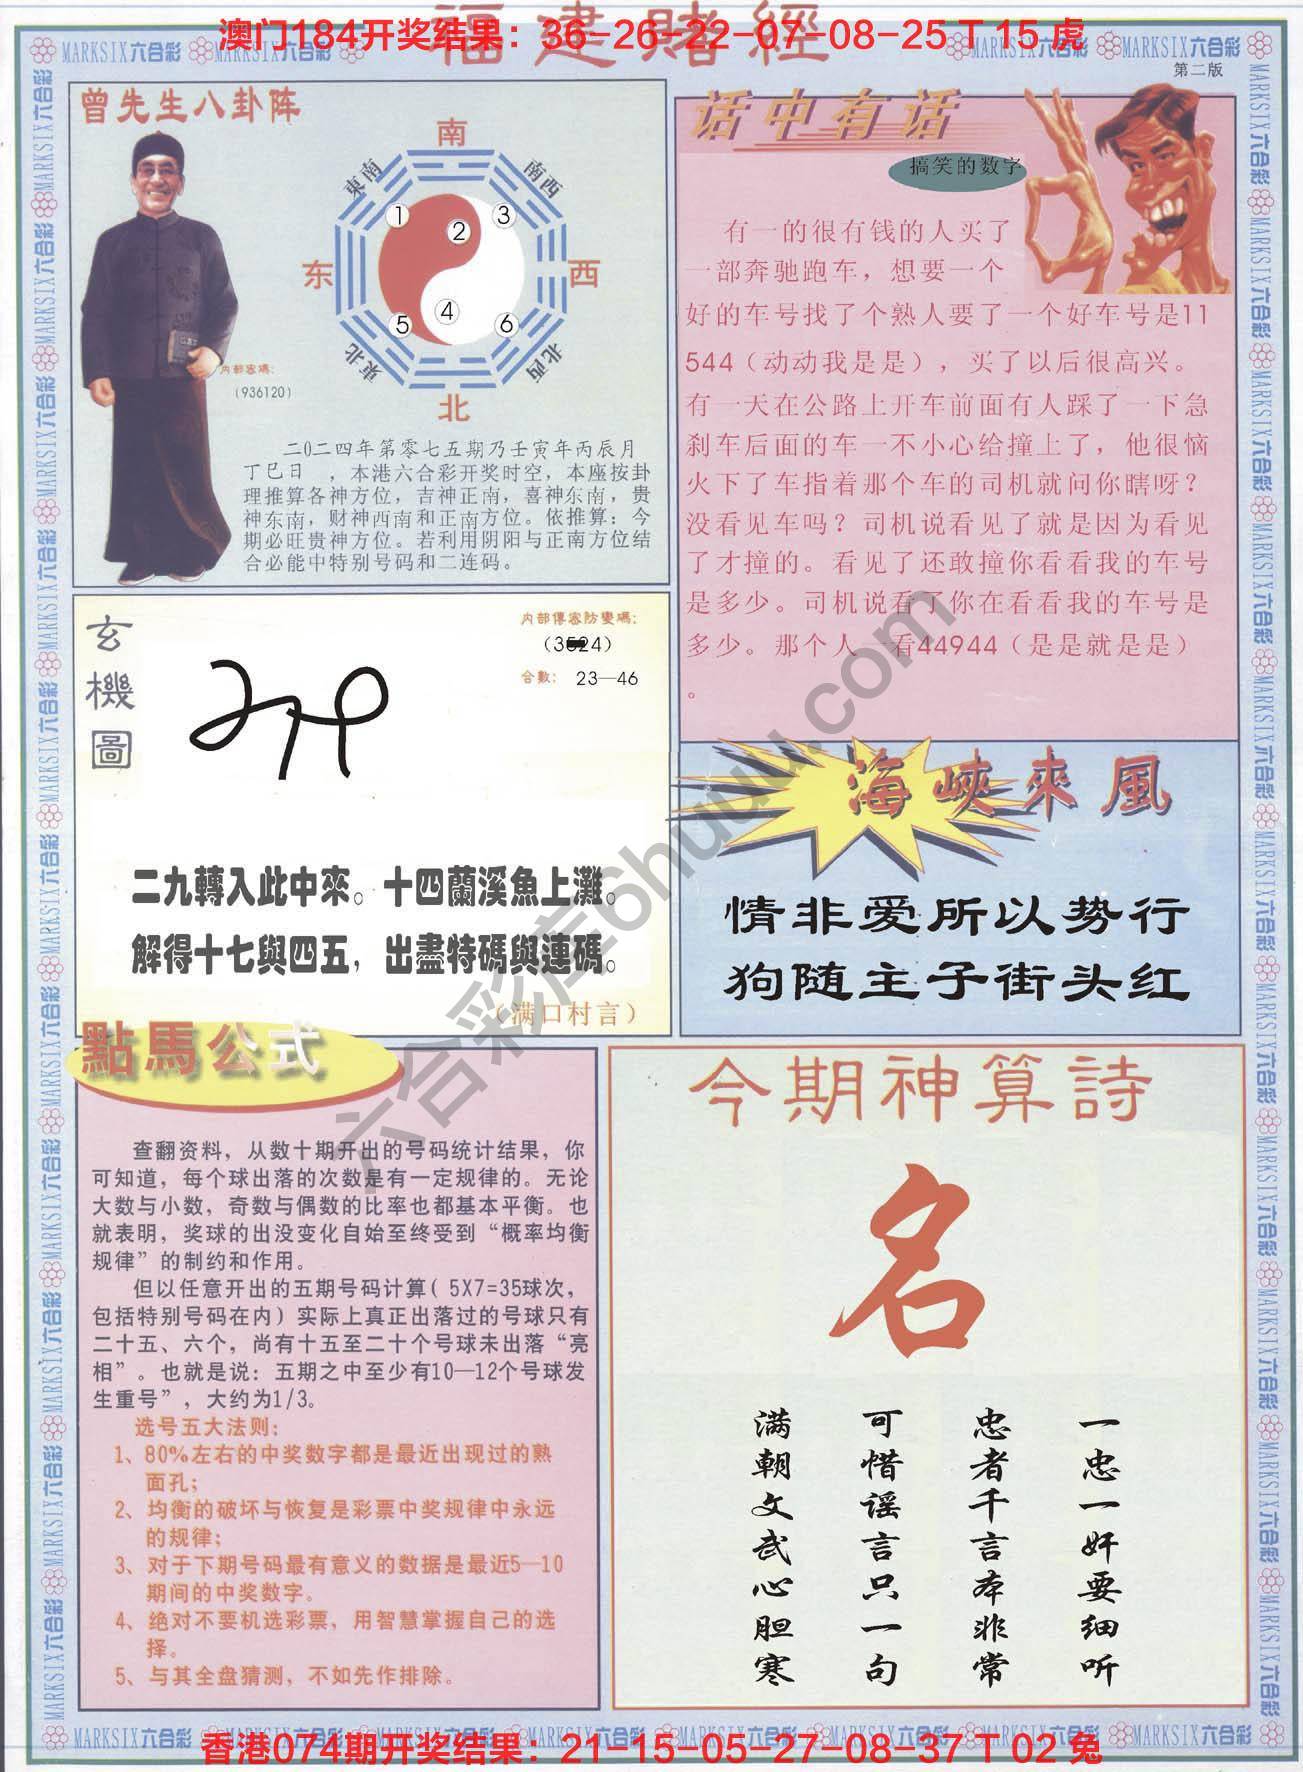 福建赌經
澳门184开奖结果：36-26-22-07-08-25 T 15 虎
MARKSIX六合彩
第二版
曾先生八卦阵
南
東南
南西
1
2
3
东
西
4
5
6
東北
北西
北
内部密碼:
(936120)
二0二四年第零七五期乃壬寅年丙辰月
丁巳日 ，本港六合彩开奖时空，本座按卦
理推算各神方位，吉神正南，喜神东南，贵
神东南，财神西南和正南方位。依推算：今
期必旺贵神方位。若利用阴阳与正南方位结
合必能中特别号码和二连码。
话中有话
搞笑的数字
有一的很有钱的人买了
一部奔驰跑车，想要一个
好的车号找了个熟人要了一个好车号是11
544（动动我是是），买了以后很高兴。
有一天在公路上开车前面有人踩了一下急
刹车后面的车一不小心给撞上了，他很恼
火下了车指着那个车的司机就问你瞎呀？
没看见车吗？司机说看见了就是因为看见
了才撞的。看见了还敢撞你看看我的车号
是多少。司机说看了你在看看我的车号是
多少。那个人一看44944（是是就是是）
。
玄機圖
内部傳密防變碼:
合數: 23—46
二九轉入此中來。十四蘭溪魚上灘。
解得十七與四五，出盡特碼與連碼。
（满口村言）
海峽來風
情非爱所以势行
狗随主子街头红
點馬公式
查翻资料，从数十期开出的号码统计结果，你
可知道，每个球出落的次数是有一定规律的。无论
大数与小数，奇数与偶数的比率也都基本平衡。也
就表明，奖球的出没变化自始至终受到“概率均衡
规律”的制约和作用。
但以任意开出的五期号码计算( 5X7=35球次，
包括特别号码在内）实际上真正出落过的号球只有
二十五、六个，尚有十五至二十个号球未出落“亮
相”。也就是说：五期之中至少有10—12个号球发
生重号”，大约为1/3。
选号五大法则：
1、80%左右的中奖数字都是最近出现过的熟
面孔；
2、均衡的破坏与恢复是彩票中奖规律中永远
的规律；
3、对于下期号码最有意义的数据是最近5—10
期间的中奖数字。
4、绝对不要机选彩票，用智慧掌握自己的选
择。
5、与其全盘猜测，不如先作排除。
今期神算詩
名
一忠一奸要细听
忠者千言本非常
可惜谣言只一句
满朝文武心胆寒
六合彩库6huuu.com
香港074期开奖结果：21-15-05-27-08-37 T 02 兔